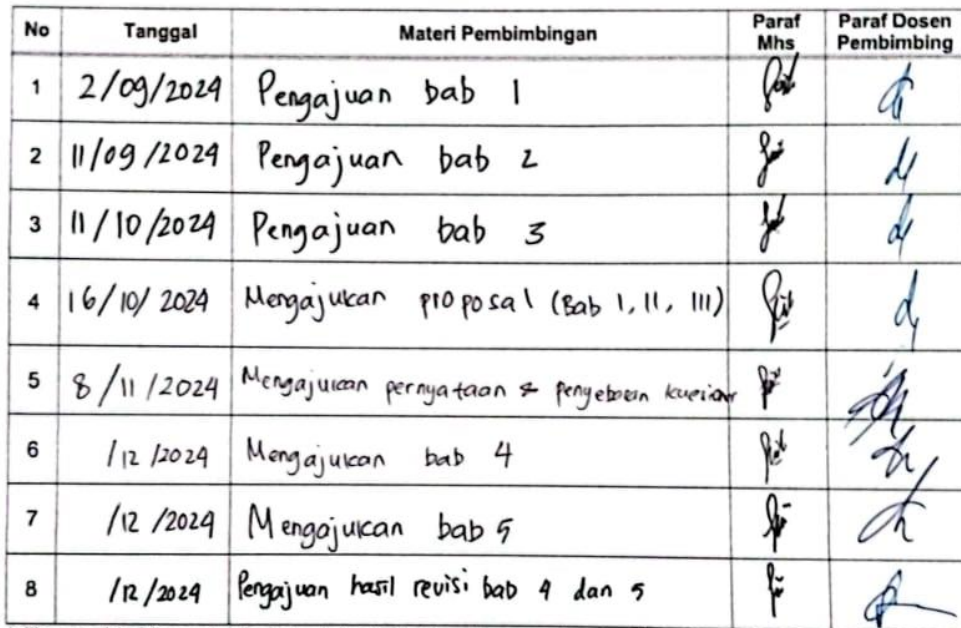 No Tanggal Materi Pembimbingan Paraf Mhs Paraf Dosen Pembimbing
1 2/09/2024 Pengajuan bab 1
2 11/09/2024 Pengajuan bab 2
3 11/10/2024 Pengajuan bab 3
4 16/10/2024 Mengajukan proposal (Bab I, II, III)
5 8/11/2024 Mengajukan pernyataan & penyebaran
6 /12/2024 Mengajukan bab 4
7 /12/2024 Mengajukan bab 5
8 /12/2024 Pengajuan hasil revisi bab 4 dan 5